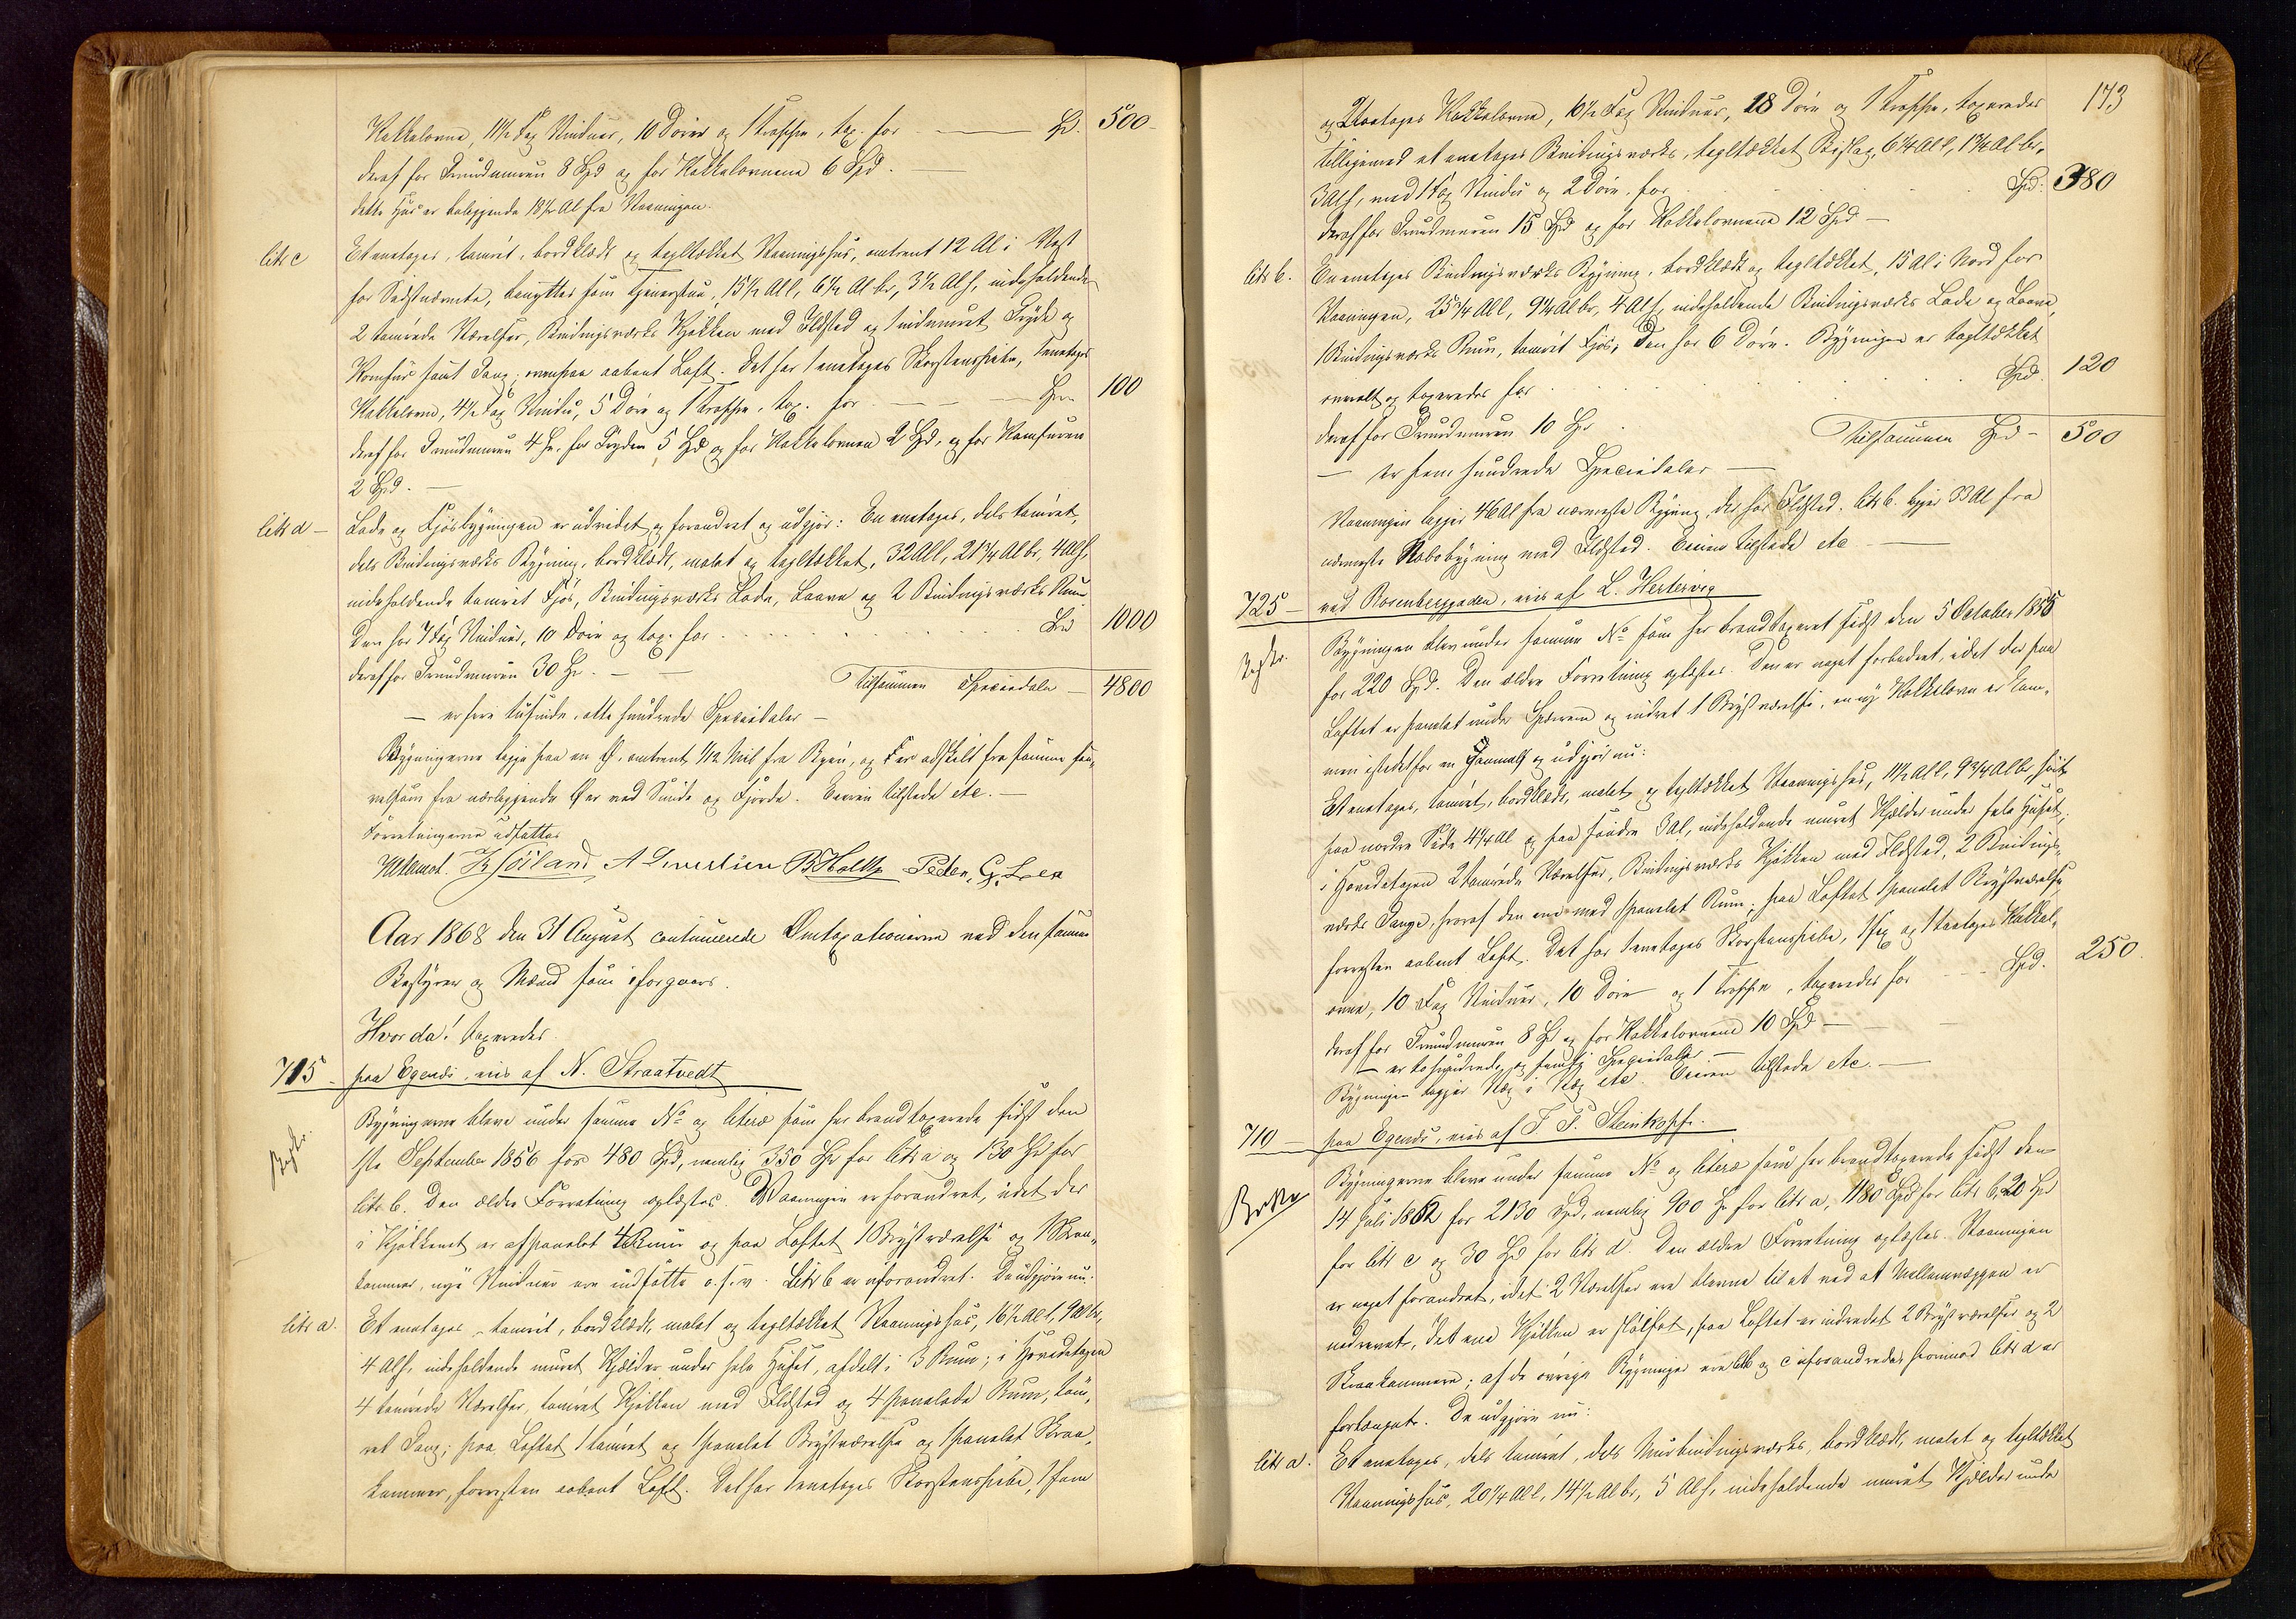 Kakkelovne, 11½ Fag Vinduer, 10 Döre og 1 Trappe, tax. for — Spd. 500 -
deraf for Grundmuren 8 Spd og for Kakkelovnene 6 Spd. —
dette Huus er beliggende 18½ Al fra Vaaningen.
litr c Et enetages, tömret, bordklædt og tegltækket Vaaningshus, omtrent 12 Al i Vest
for Sidstnævnte, benyttes som 15½ Al l, 6½ Al br, 3½ Al h, indeholdende
2 tömrede Værelser, Bindingsværks Kjökken med Ildsted og 1 indmuret Gryde og
Komfur samt Gang; ovenpaa aabent Loft. Det har 1 enetages Skorstenspibe, 1 enetages
Kakkelovn, 4½ Fag Vindu, 5 Döre og 1 Trappe, tax. for — — Spd 100
deraf for Grundmuren 4 Sp. for Gryden 5 Spd og for Kakkelovnen 2 Spd, og for Komfuren
2 Spd. —
litr d — Lade og Fjösbygningen er udvidet og forandret og udgjör: En enetages, dels tömret,
dels Bindingsværks Bygning, bordklædt, malet og tegltækket, 32 Al l, 21¾ Al br, 4 Al h.
indeholdende tömret Fjös, Bindingsværks Lade, Laave og 2 Bindingsværks Rum
Den har 7 Fag Vinduer, 10 Döre og tax. for . . . . . . Spd 1000
deraf for Grundmuren 30 Sp. — —
Tilsammen Speciedaler — 4800
— er fire tusinde, otte hundrede Speciedaler —
Bygningerne ligge paa en Ö, omtrent 1/12 Mil fra Byen, og er adskilt fra samme saa-
velsom fra nærliggende Öer ved Sunde og Fjorde. Eieren tilstede etc. —
Forretningerne udsattes
Aar 1868 den 31 August continuerede Omtaxationerne ved den samme
Bestyrer og Mænd som iforgaars.
Hvor da! taxeredes
715 — paa Egenæs, eies af N. Straatvedt
Bygningerne bleve under samme No og literæ som her brandtaxerede sidst den
1ste September 1856 for 480 Spd, nemlig 350 Sp for litr a og 130 Spd for
litr b. Den ældre Forretning oplæstes. Vaaningen er forandret, idet der
i Kjökkenet er afpanelet 4 Rum og paa Loftet 1 Brystværelse og 1 Skraa-
kammer, nye Vinduer ere indsatte o.s.v. Litr b er uforandret. De udgjöre nu:
litr a. Et enetages, tömret, bordklædt, malet og tegltækket Vaaningshus, 16½ Al l, 9 Al br,
4 Al h, indeholdende muret Kjælder under hele Huset, afdelt i 3 Rum; i Hovedetagen
4 tömrede Værelser, tömret Kjökken med Ildsted og 4 panelede Rum, töm-
ret Gang; paa Loftet 1 tömret og 1 panelet Brystværelse og 1 panelet Skraa-
kammer, forresten aabent Loft. Det har 1 enetages Skorstenspibe, 1 fem
173
og 2 toetages Kakkelovne, 16½ Fag Vinduer, 18 Döre og 1 Trappe, taxeredes
tilligemed et enetages Bindingsværks, tegltækket Bislag, 6¼ Al l, 1¾ Al br,
3 Al h, med 1 Fag Vindu og 2 Döre, for . . . . Spd. 380
deraf for Grundmuren 15 Spd og for Kakkelovnene 12 Spd —
litr b. En enetages Bindingsværks Bygning, bordklædt og tegltækket, 15 Al i Nord for
Vaaningen, 25¼ Al l, 9¼ Al br, 4 Al h, indeholdende Bindingsværks Lade og Laave,
1 Bindingsværks Rum, tömret Fjös; Den har 6 Döre. Bygningen er tegltækket
og taxeredes for . . . . . . Spd. 120
deraf for Grundmuren 10 Spd
Tilsammen Spd — 500
— er fem hundrede Speciedaler —
Vaaningen ligger 46 Al fra nærmeste Bygning, der har Ildsted. litr b. ligger 33 Al fra
nærmeste Nabobygning med Ildsted. Eieren tilstede etc —
725 — ved Rosenberggaden, eies af L. Hertervig
Bygningen blev under samme No som her brandtaxeret sidst den 5 October 1855
for 220 Spd. Den ældre Forretning oplæstes. Den er noget forbedret, idet der paa
Loftet er panelet under Sperrene og indret 1 Brystværelse, en ny Kakkelovn er kom-
men istedetfor en Gammel og udgjör nu:
Et enetages, tömret, bordklædt, malet og tegltækket Vaaningshus, 11½ Al l, 9¾ Al br, höit
paa nordre Side 4¼ Al og paa söndre 3 Al, indeholdende muret Kjælder under hele Huset;
i Hovedetagen 2 tömrede Værelser, Bindingsværks Kjökken med Ildsted, 2 Bindings-
værks Gange, hvoraf den ene med panelet Rum; paa Loftet 1 panelet Brystværelse
forresten aabent Loft. Det har 1 enetages Skorstenspibe, 1 sex og 1 toetages Kakkel-
ovne, 10 Fag Vinduer, 10 Döre og 1 Trappe, taxeredes for — Spd. 250.
deraf for Grundmuren 8 Sp og for Kakkelovnene 10 Spd —
— er tohundrede og femti Speciedaler —
Bygningen ligger Væg i Væg etc. Eieren tilstede etc. —
710 — paa Egenæs, eies af F. P. Steinkopff.
Bygningerne bleve under samme No og literæ som her brandtaxerede sidst den
14 Juli 1862 for 2130 Spd, nemlig 900 Sp for litr a, 1180 Spd for litr b, 20 Spd
for litr c og 30 Spd for litr d. Den ældre Forretning oplæstes. Vaaningen
er noget forandret, idet 2 Værelser ere blevne til et ved at Mellemvæggen er
nedrevet, det ene Kjökken er slöifet, paa Loftet er indredet 2 Brystværelser og 2
Skraakammere; af de övrige Bygninger ere litr b og c uforandrede hvorimod litr d er
forlænget. De udgjöre nu:
litr a. Et enetages, dels tömret, dels Murbindingsværks, bordklædt, malet og tegltækket
Vaaningshus, 20¼ Al l, 14½ Al br, 5 Al h, indeholdende muret Kjælder under